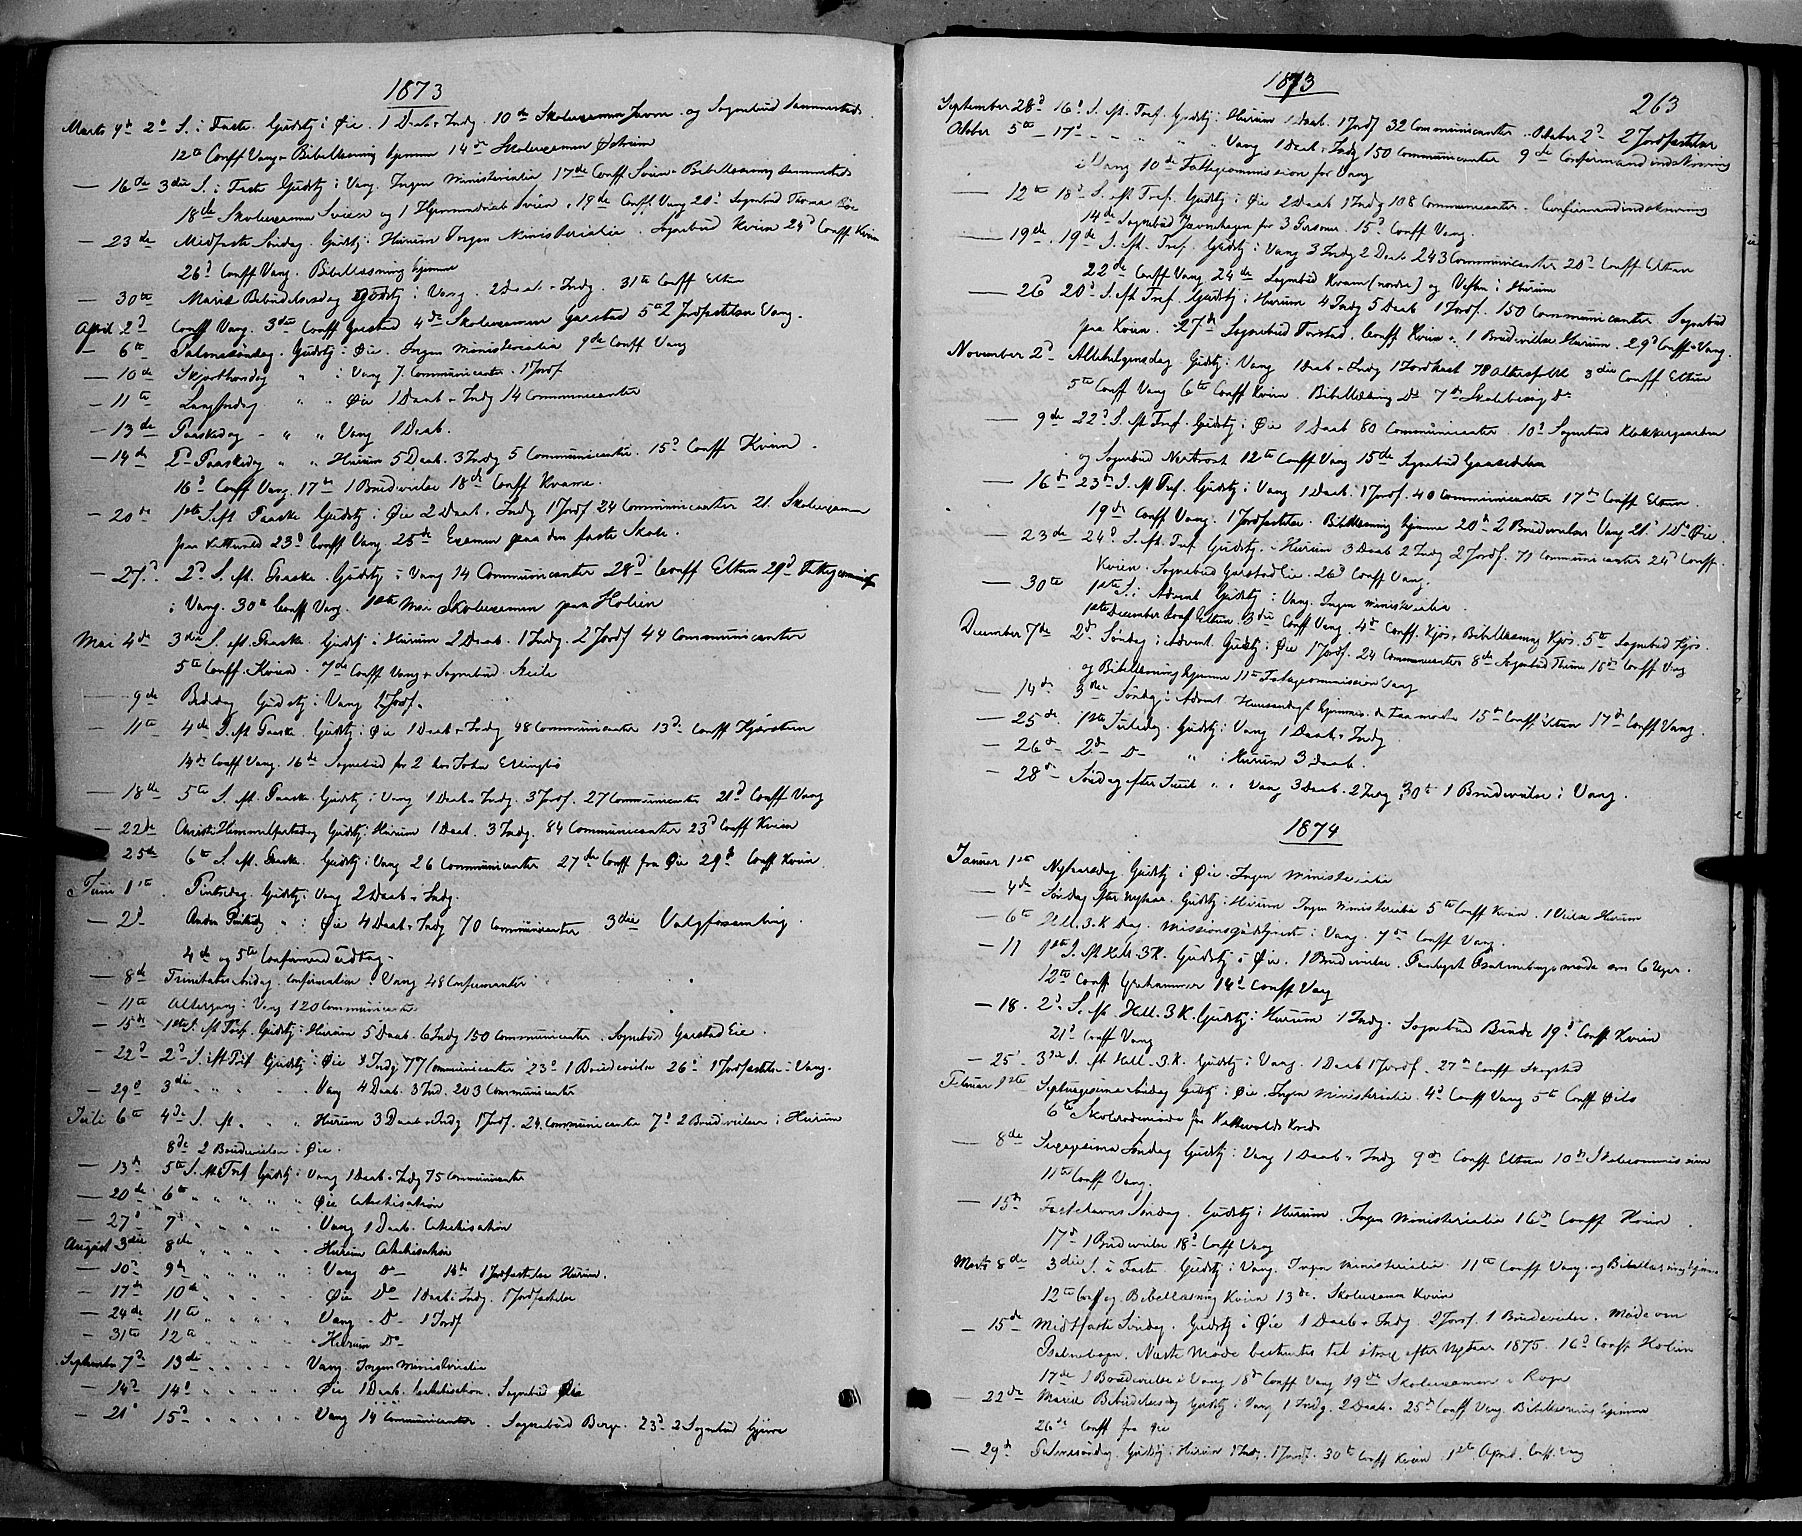 1873
Marts 9d 2d S. i Faste. Gudstj i Øie. 1 Daab + Indg. 10de Skoleexamen Javne og Sognebud sammesteds
12te Conff Vang + Bibellæsning hjemme 14de Skoleexamen
— 16de 3die S. i Faste Gudstj i Vang. Ingen Ministerialia 17de Conff Bibellæsning sammesteds
18de Skoleexamen Svien og 1 Svien. 19de Conff Vang 20d Sognebud Thomas
— 23de Midfaste Søndag. Gudstj: Hurum Ingen Ministerialia. Sognebud Kvien 24d Conff Kvien
26d Conff Vang. Bibellæsning hjemme
— 30te Mariæ Bebudelsesdag Gudstj i Vang. 2 Daab + Indg. 31te Conff Eltun
April 2d Conff Vang. 3die Conff Garstad 4de Skoleexamen Garstad 5te 2 Jordfæstelser Vang.
— 6te Palmesøndag. Gudstj: Øie. Ingen Ministerialia 9de Conff Vang
— 10de Skjærthorsdag " i Vang 7 Communicanter. 1 Jordf
— 11te Langfredag " " Øie 1 Daab + Indg 14 Communicanter
— 13de Paaskedag " " Vang 1 Daab.
— 14de 2. Paaskedag " " Hurum 5 Daab. 3 Indg 5 Communicanter. 15d Conff Kvien.
16d Conff Vang. 17de 1 Brudevielse 18de Conff Kvame.
— 20de 1ste S. eft Paaske Gudstj i Øie 2 Daab + Indg 1 Jordf 24 Communicanter 21. Skoleexamen
paa Kattevold 23d Conff Vang. 25de Examen paa den faste Skole.
— 27d. 2d S. eft. Paaske. Gudstj i Vang 14 Communicanter 28d Conff Eltun 29d
i Vang. 30te Conff Vang. 1ste Mai Skoleexamen paa Holien
Mai 4de 3die S. eft. Paaske. Gudstj i Hurum 2 Daab. 1 Indg. 2 Jordf 44 Communicanter
5te Conff Kvien. 7de Conff Vang + Sognebud
— 9de Bededag Gudstj i Vang 1 Jordf.
— 11te 4de S. eft Paaske. Gudstj: Øie 1 Daab + Indg 48 Communicanter 13d. Conff
14de Conff Vang. 16de Sognebud for 2 hos John
— 18de 5te S. eft. Paaske. Gudstj i Vang 1 Daab + Indg. 3 Jordf. 27 Communicanter 21d Conff Vang
— 22de Christi Himmelfartsdag Gudstj: Hurum 1 Daab. 3 Indg. 84 Communicanter 23d Conff Kvien
25de 6te S. eft. Paaske. Gudstj: Vang 26 Communicanter 27de Conff fra Øie 29d Conff Kvien.
Juni 1ste Pintsedag. Gudstj: Vang 2 Daab + Indg.
— 2d Anden Pintsedag " : Øie 4 Daab + Indg 70 Communicanter 3die Valgforsamling.
4de og 5te Confirmand
— 8de Trinitatis Søndag. Confirmation i Vang 48 Confirmanter
— 11te Altergang i Vang 120 Communicanter
— 15de 1ste S. eft Tref. Gudstj: Hurum 5 Daab. 6 Indg 150 Communicanter. Sognebud Garstad Eie.
— 22d 2d S. eft Tref. Gudstj: Øie Indg 77 Communicanter 23d 1 Brudevielse 26d 1 Jordfæstelse i Vang.
— 29d 3die " " " Vang 4 Daab. 3 Ind. 203 Communicanter
Juli 6te 4de S. eft. " " Hurum 3 Daab + Indg 1 Jordf. 24 Communicanter 7d 2 Brudevielser i Hurum
8de 2 Brudevielser i Øie.
— 13de 5te S. eft Tref Gudstj: Vang 1 Daab + Indg 75 Communicanter
— 20de 6te " " " " Øie Catechisation
— 27d 7d " " " " Vang 1 Daab. Catechisation
August 3die 8de " " " " Hurum Catechisation
— 10d 9de " " " " Vang Do 14de 1 Jordfæstelse Hurum.
— 17de 10de " " " " Øie Do 1 Daab + Indg. 1 Jordfæstelse
— 24de 11te " " " " Vang Do 1 Jordf
— 31te 12te " " " " Hurum Do
September 7de 13de " " " " Vang. Ingen Ministerialia
— 14d 14d " " " " Øie 1 Daab. Catechisation. Sognebud Øie
— 21d 15d " " " " Vang 14 Communicanter. Sognebud Berge. 23d. 2 Sognebud
1873
263
September 28d 16d S. eft. Tref. Gudstj: Hurum 1 Daab. 1 Jordf 32 Communicanter. Oktober 2d 2 Jordfæstelser
Oktober 5te 17d " " " Vang 1 Daab + Indg 150 Communicanter 9de Confirmandindskrivning
i Vang 10de Fattigcommission for Vang
— 12te 18d S. eft Tref. Gudstj i Øie 2 Daab 1 Indg 108 Communicanter. Confirmandindskrivning
14de Sognebud Javnehagen for 3 Personer. 15d Conff Vang.
— 19de 19de S. eft. Tref. Gudstj i Vang 3 Indg 2 Daab 243 Communicanter 20d Conff Eltun
22de Conff Vang 24de Sognebud Kvam (nordre) og i Hurum
— 26d 20d S. eft Tref. Gudstj: Hurum 4 Indg 5 Daab 1 Jordf. 150 Communicanter. Sognebud
paa Kvien. 27de Sognebud. Conff Kvien. 1 Brudevielse Hurum. 29d Conff Vang.
November 2d Allehelgensdag Gudstj: Vang 1 Daab + Indg 1 Jordkast 78 Altersfolk 3die Conff Eltun
5te Conff Vang 6te Conff Kvien. Bibellæsning Do 7de Skolebesøg Do
— 9de 22d S. eft Tref. Gudstj: Øie 1 Daab 80 Communicanter. 10d Sognebud Klokkergaarden
og Sognebud 12te Conff Vang 15de Sognebud
— 16de 23de S. eft Tref. Gudstj: Vang 1 Daab. 1 Jordf. 40 Communicanter 17de Conff Eltun.
19de Conff Vang. 1 Jordfæstelse. Bibellæsning hjemme 20de 2 Brudevielser Vang 21d 1 Do Øie.
— 23de 24d S. eft. Tref. Gudstj. i Hurum 3 Daab 2 Indg 2 Jordf. 71 Communicanter 24d Conff
Kvien. Sognebud Garstad Eie. 26d Conff Vang.
— 30te 1ste S. i Advent Gudstj: Vang. Ingen Ministerialia.
1ste December Conf Eltun. 3die Conff Vang. 4de Conff. Kjøs + Bibellæsning Kjøs. 5te Sognebud Kjøs.
December 7de 2d Søndag i Advent. Gudstj: Øie 1 Jordf. 24 Communicanter 8de Sognebud 10de Conff Vang
og Bibellæsning hjemme 11te Fattigcommission Vang
— 14de 3die Søndag i Advent 15de Conff Eltun 17de Conff Vang.
— 25de 1ste Juledag. Gudstj i Vang 1 Daab + Indg.
— 26de 2de Do " i Hurum 3 Daab.
— 28de Søndag efter Juul " " Vang 3 Daab. 2 Indg. 30te 1 Brudevielse i Vang.
1874
Januar 1ste Nytaarsdag Gudstj i Øie. Ingen Ministerialia
— 4de Søndag efter Nytaar. Gudstj: Hurum Ingen Ministerialia 5te Conff Kvien. 1 Vielse Hurum
— 6te Hell. 3. K. Dag. Missionsgudstjeneste i Vang. 7de Conff Vang.
— 11 1ste S. eft Hell. 3 K. Gudstj i Øie. 1 Brudevielse. Psalmebogsmøde om 6 Uger.
12te Conff 14d Conff Vang
— 18. 2d S. eft. Hell. 3 K. Gudstj: Hurum 1 Indg. Sognebud Bunde 19d Conff Kvien
21d Conff Vang
— 25d 3die S. eft Hell. 3 K. Gudstj i Vang. 1 Daab 1 Jordf. 27de Conff
Februar 1ste Septuagesima Søndag Gudstj: Øie. Ingen Ministerialie. 4d Conff Vang 5te Conff Øilo
6te for Kattevolds Kreds
— 8de Sexagesima Søndag Gudstj: Vang 1 Daab + Indg 9de Conff Eltun 10de Skolecommission
11te Conff Vang.
— 15de Fastelavns Søndag. Gudstj i Hurum. Ingen Ministerialia 16de Conff Kvien.
17d 1 Brudevielse 18d Conff Vang
Marts 8de 3die S. i Faste Gudstj i Vang. Ingen Ministerialia. 11te Conff Vang og Bibellæsning hjemme
12te Conff og Bibellæsning Kvien 13de. Skoleexamen Kvien
— 15de Midtfaste Søndag. Gudstj i Øie 1 Daab + Indg. 2 Jordf. 1 Brudevielse. Møde om
Psalmebogen. Næste Møde bestemtes til strax efter Nytaar 1875. 16d Conff Holien
17de 1 Brudevielse i Vang 18d Conff Vang 19de Skoleexamen i Rogn
— 22de Mariæ Bebudelsesdag Gudstj i Vang 1 Indg. 2 Daab. 25d Conff Vang. Bibellæsning hjemme
26de Conff fra Øie
— 29de Palmesøndag. Gudstj i Hurum 1 Indg. 1 Jordf. 30te Conff Kvien. 1ste April. Conff. Vang